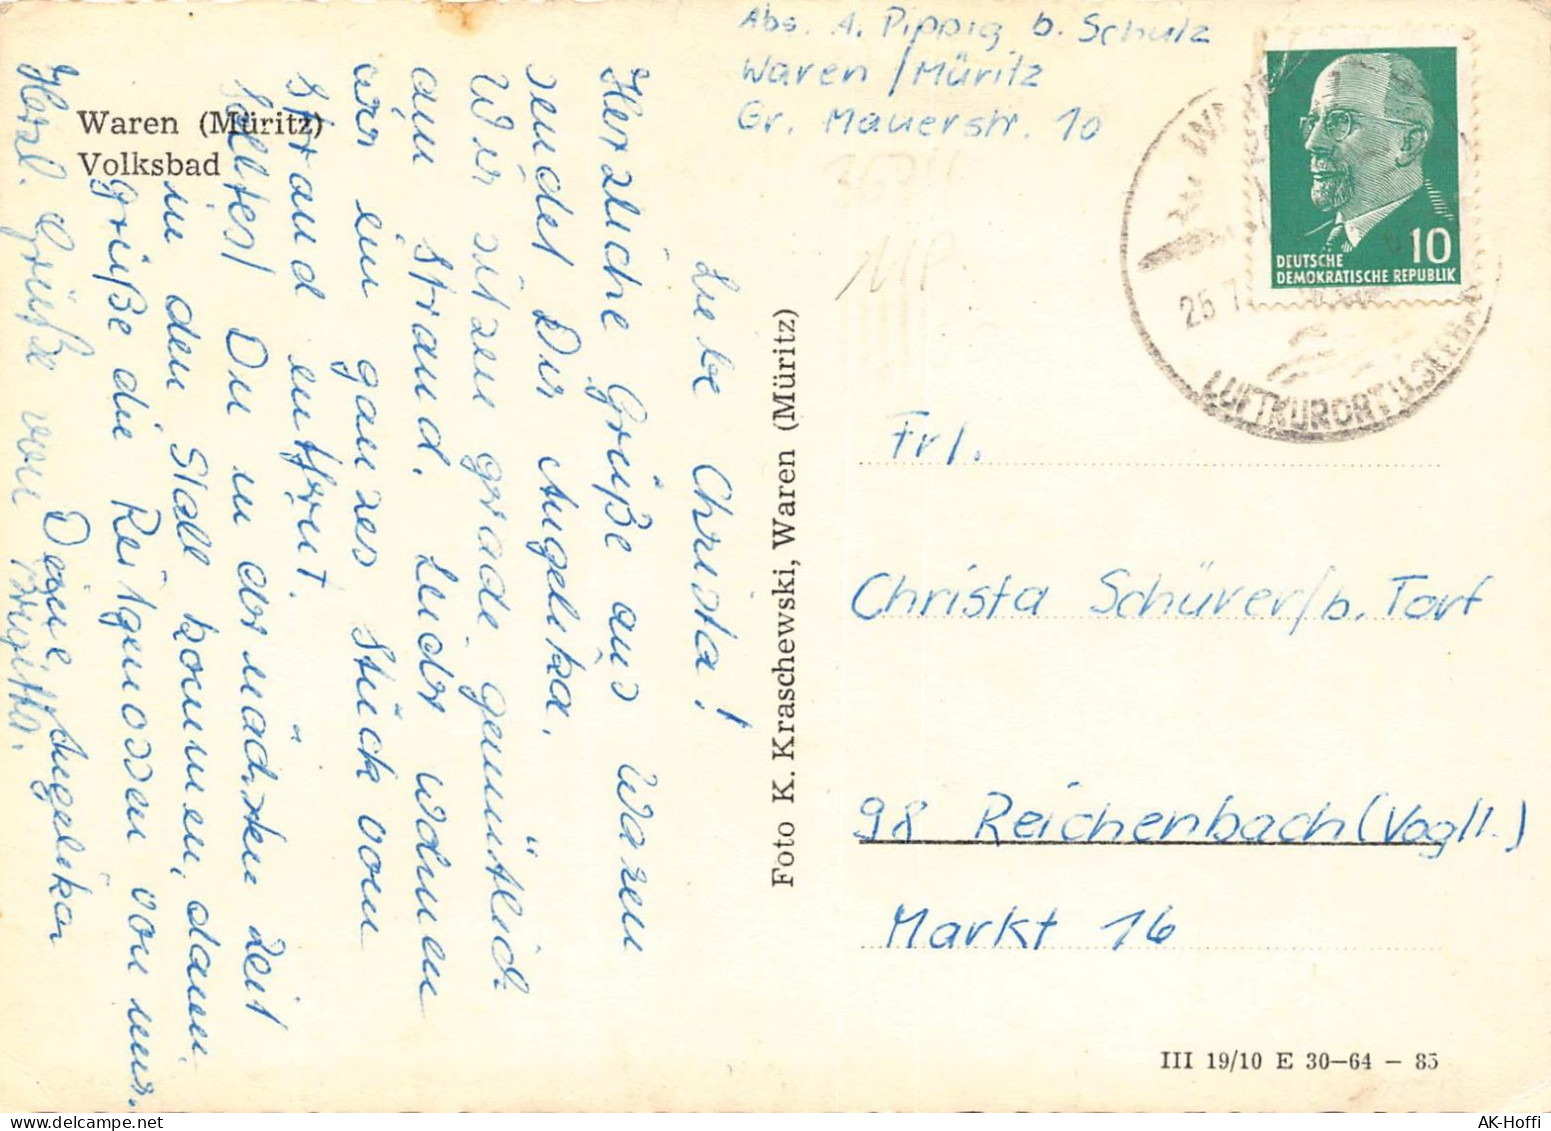 Waren (Müritz)
Volksbad
Abs. A. Pippig b. Schulz
Waren / Müritz
Gr. Mauerstr. 10
DEUTSCHE
DEMOKRATISCHE REPUBLIK
10
25.7.
LUFTKURORT
Liebe Christa!
Herzliche Grüße aus Waren
sendet Dir Angelika.
Wir sitzen grade gemütlich
am Strand. Leider wohnen
wir ein ganzes Stück vom
Strand entfernt.
Solltest Du in der nächsten Zeit
in den Stall kommen, dann
grüße die Reitgenossen von mir.
Deine Angelika
Herzl. Grüße von Brigitta.
Foto K. Kraschewski, Waren (Müritz)
Frl.
Christa Schürer/b. Torf
98 Reichenbach (Vogtl.)
Markt 16
III 19/10 E 30-64 - 85
AK-Hoffi